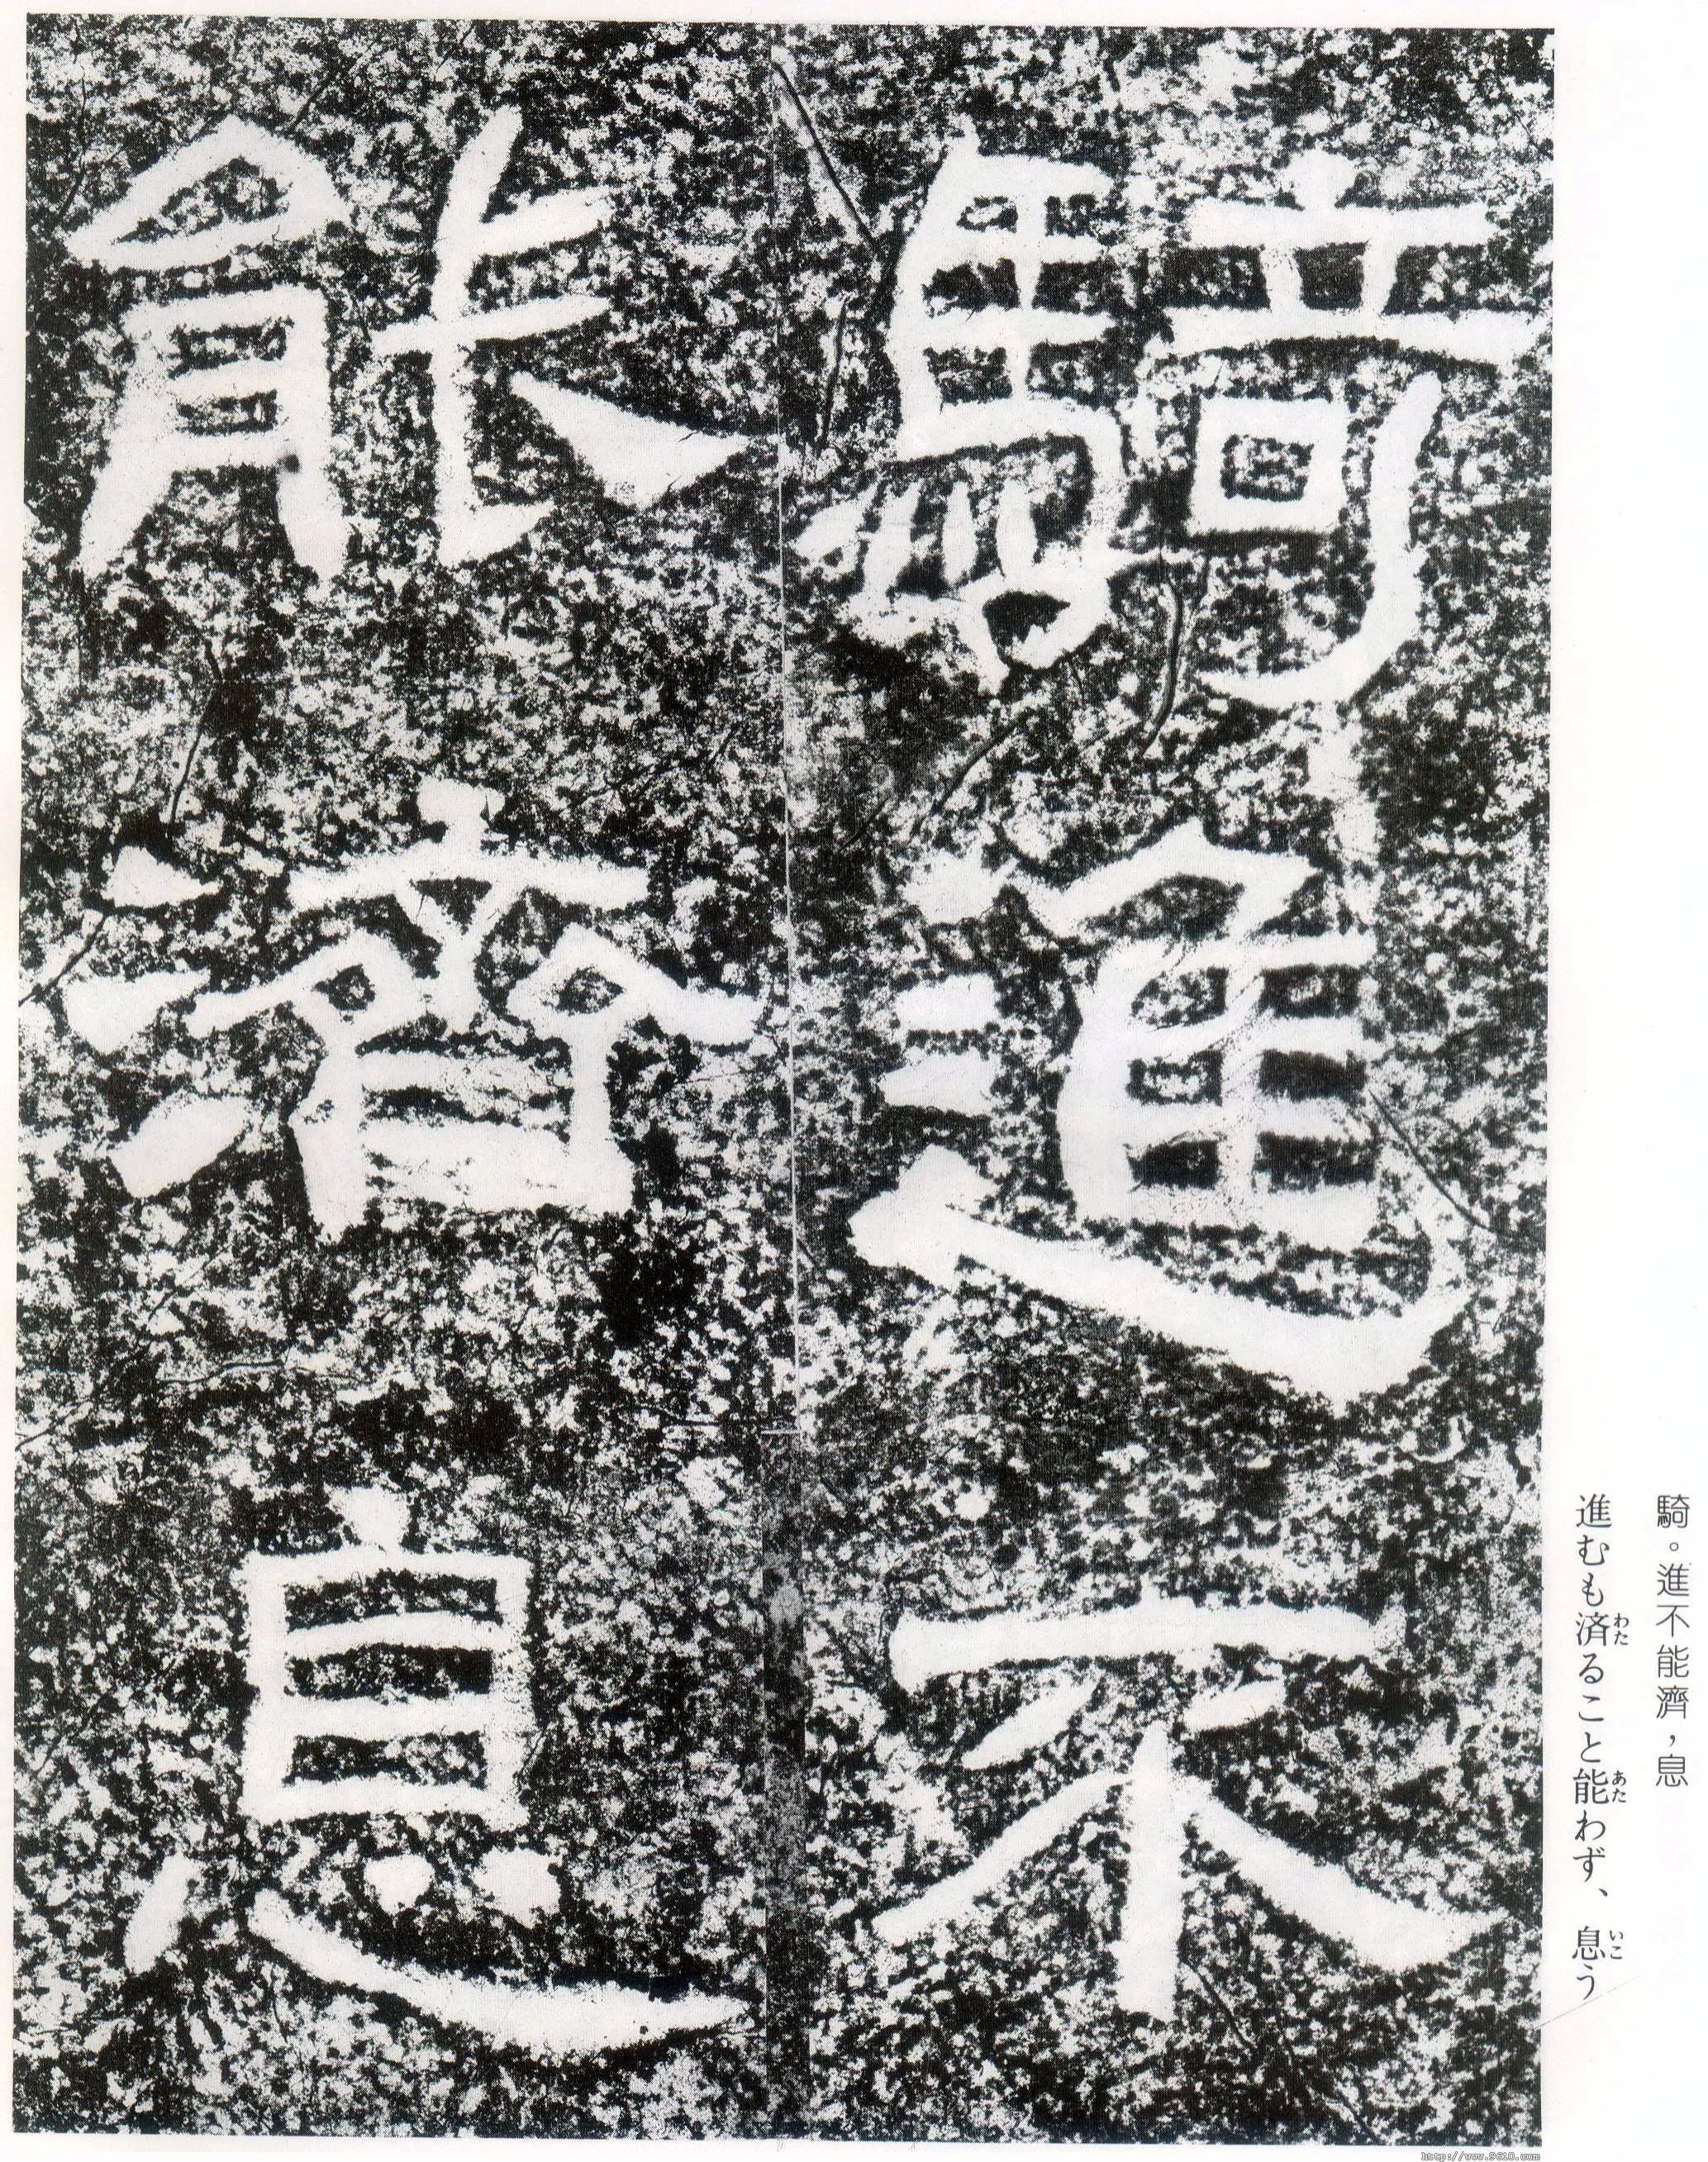 騎。進不能濟，息
進むも済ることと能わず、息う
わた
あた
いこ
騎進不
能濟息
http://www.9610.com